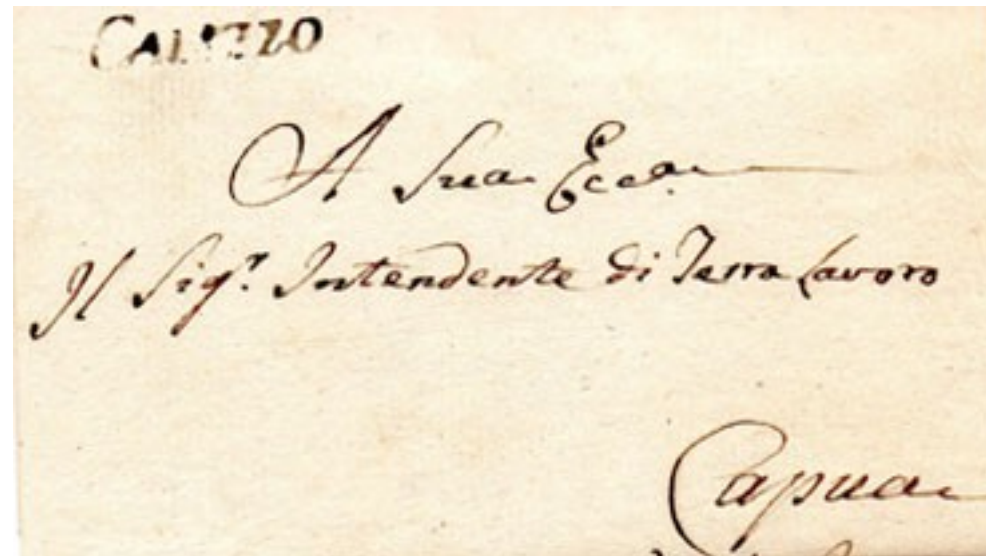 CAIAZZO
A Sua Ecca.
Il Sigr. Intendente di Terra Lavoro
Capua